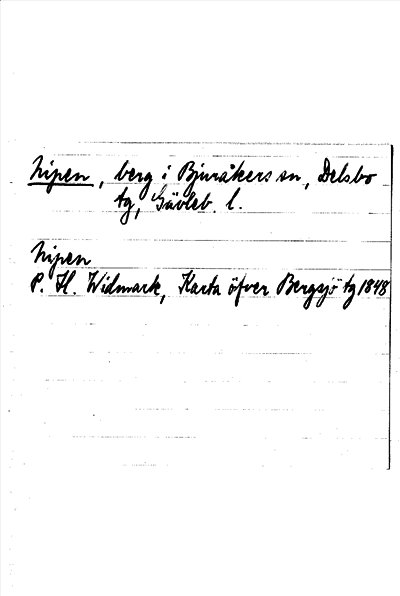 Nipen, berg i Bjuråkers sn, Delsbo
tg, Gävleb. l.
Nipen
P. H. Widmark, Karta öfver Bergsjö tg 1848